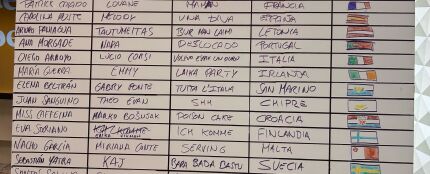 PATRICK CRIADO LOUANE MAMAN FRANCIA
CAROLINA YUSTE MELODY UNA DIVA ESPAÑA
ARTURO PANIAGUA TAUTUMEITAS BUR MAN LAIMI LETONIA
ANA MORGADE NAPA DESLOCADO PORTUGAL
DIEGO ARROYO LUCIO CORSI ITALIA
MARÍA GUERRA EMMY LAIKA PARTY IRLANDA
ELENA BELTRÁN GABRY PONTE TUTTA L'ITALIA SAN MARINO
JUAN SANGUINO THEO EVAN SHH CHIPRE
MISS CAFFEINA MARKO BOŠNJAK POISON CAKE CROACIA
EVA SORIANO ICH KOMME FINLANDIA
NACHO GARCÍA MIRIANA CONTE SERVING MALTA
SEBASTIÁN YATRA KAJ BARA BADA BASTU SUECIA